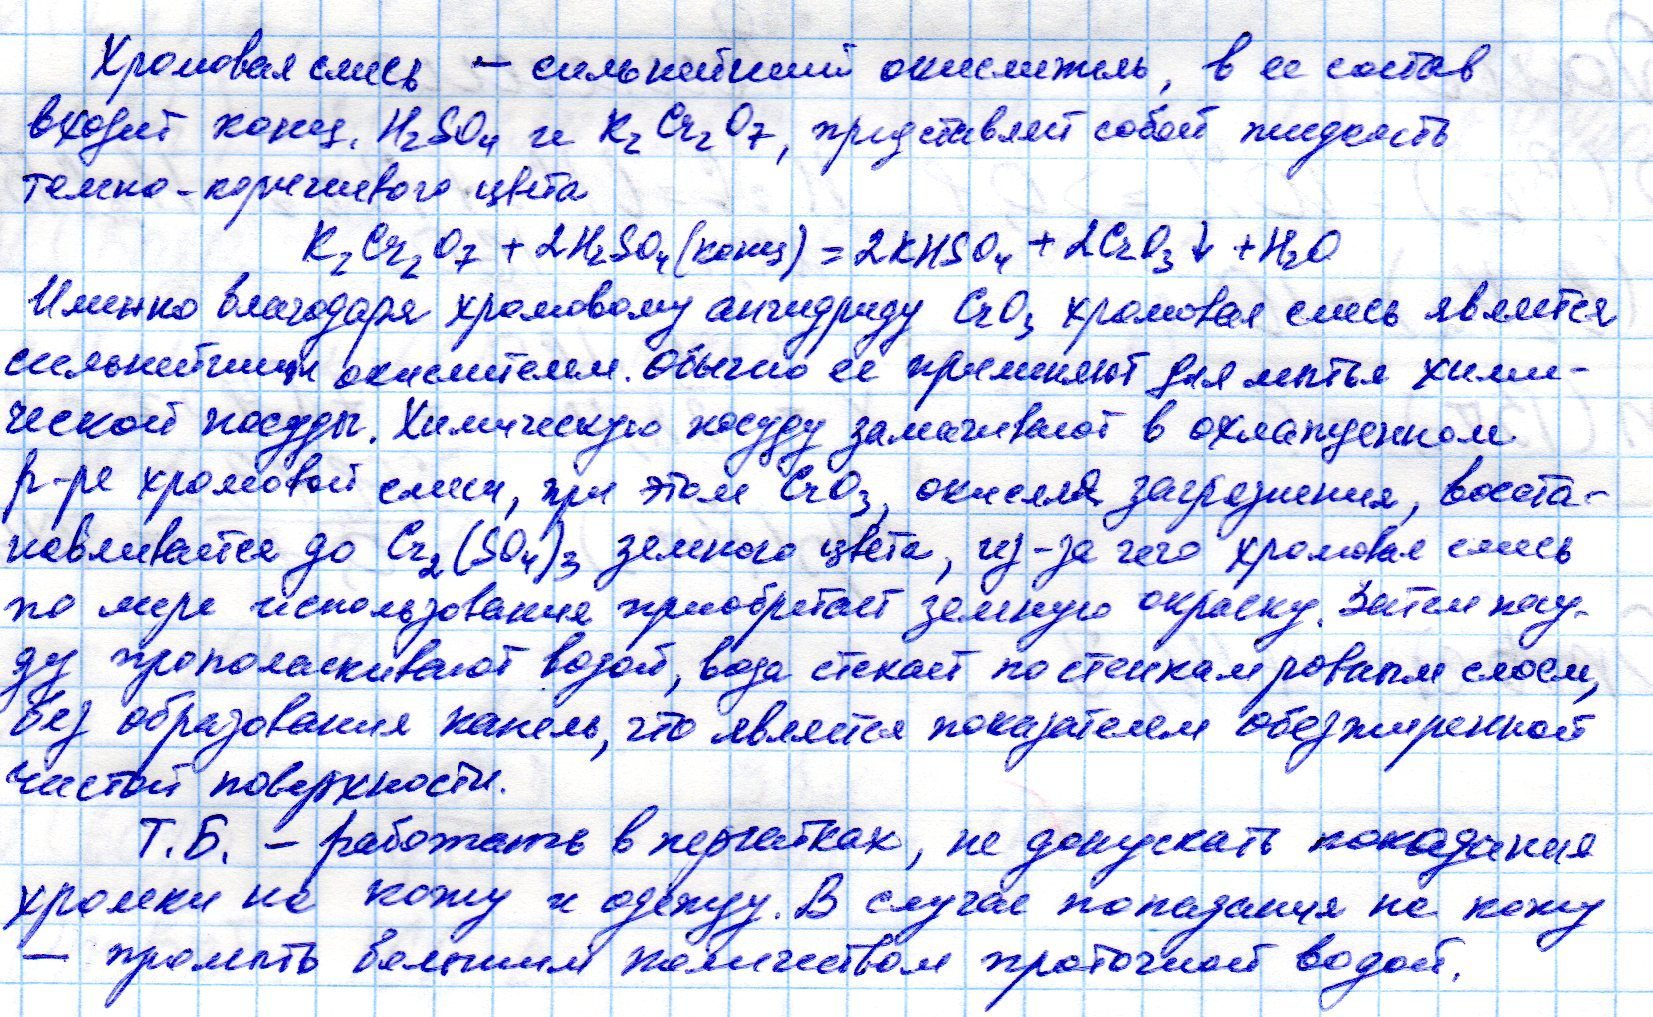 Хромовая смесь – сильнейший окислитель, в ее состав
входит конц. H₂SO₄ и K₂Cr₂O₇, представляет собой жидкость
темно-коричневого цвета
K₂Cr₂O₇ + 2H₂SO₄ (конц) = 2KHSO₄ + 2CrO₃↓ + H₂O
Именно благодаря хромовому ангидриду CrO₃ хромовая смесь является
сильнейшим окислителем. Обычно ее применяют для мытья хими-
ческой посуды. Химическую посуду замачивают в охлажденном
р-ре хромовой смеси, при этом CrO₃, окисляя загрязнения, восста-
навливается до Cr₂(SO₄)₃ зеленого цвета, из-за чего хромовая смесь
по мере использования приобретает зеленую окраску. Затем посу-
ду прополаскивают водой, вода стекает по стенкам ровным слоем,
без образования капель, что является показателем обезжиренной
чистой поверхности.
Т.Б. – работать в перчатках, не допускать попадания
хромки на кожу и одежду. В случае попадания на кожу
– промыть большим количеством проточной водой.